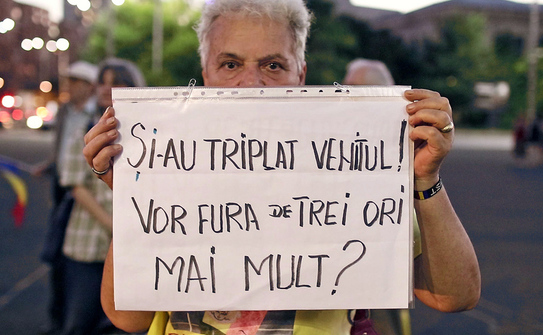 ȘI-AU TRIPLAT VENITUL!
VOR FURA DE TREI ORI
MAI MULT?